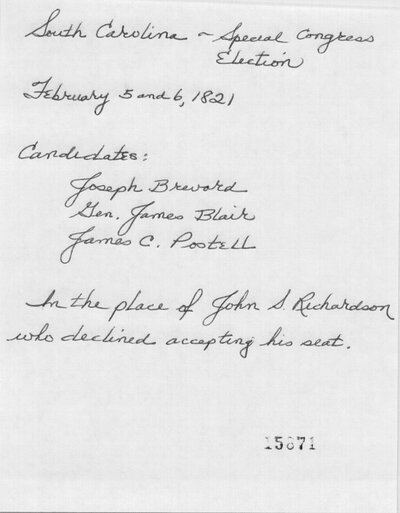 South Carolina ~ Special Congress
Election
February 5 and 6, 1821
Candidates:
Joseph Brevard
Gen. James Blair
James C. Postell
In the place of John S. Richardson
who declined accepting his seat.
15871